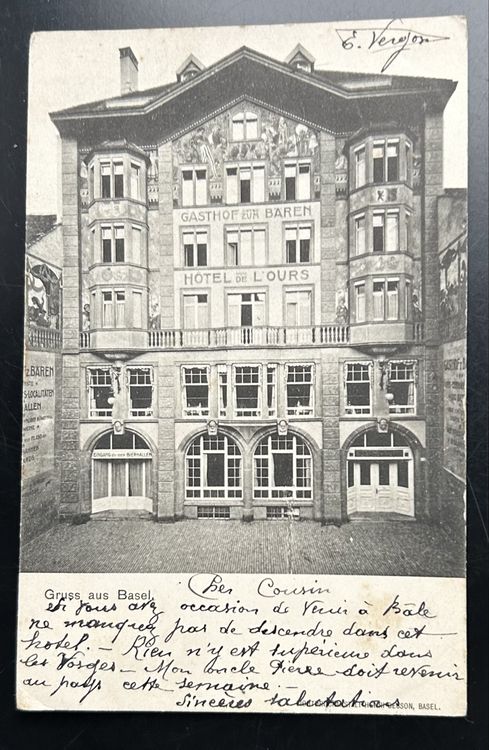 E. Vergon
GASTHOF ZUM BÄREN
HÔTEL DE L'OURS
Z. BÄREN
LOCALITÄTEN
ALLEN
EINGANG ZU DEN BIERHALLEN
Gruss aus Basel.
Cher Cousin
si vous avez occasion de venir à Bâle
ne manquez pas de descendre dans cet
hotel. - Rien n'y est supérieure dans
les Vosges - Mon oncle Pierre doit revenir
au pays cette semaine. -
Sincères salutations
SSON, BASEL.